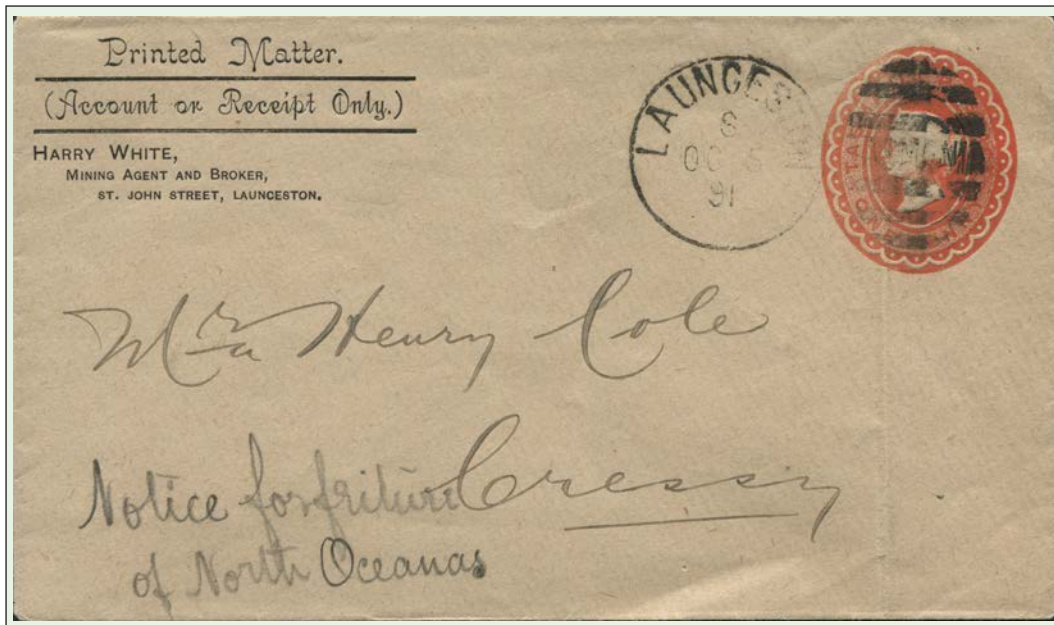 Printed Matter.
(Account or Receipt Only.)
HARRY WHITE,
MINING AGENT AND BROKER,
ST. JOHN STREET, LAUNCESTON.
LAUNCESTON
8
OC 5
91
Mr Henry Cole
Cressy
Notice forfriture
of North Oceanas